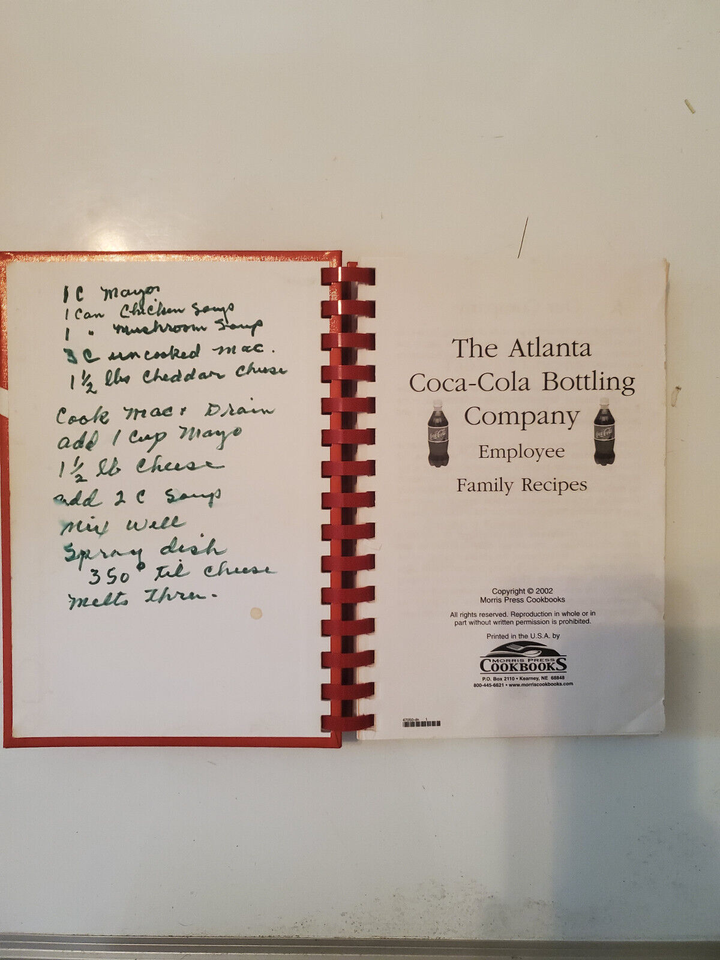 1 C Mayo
1 Can Chicken Soup
1 " Mushroom Soup
3 C uncooked mac.
1 1/2 lbs Cheddar Cheese
Cook Mac & Drain
add 1 Cup Mayo
1 1/2 lb Cheese
add 2 C Soup
Mix Well
Spray dish
350° til Cheese
Melts Thru.
The Atlanta
Coca-Cola Bottling
Company
Employee
Family Recipes
Copyright © 2002
Morris Press Cookbooks
All rights reserved. Reproduction in whole or in
part without written permission is prohibited.
Printed in the U.S.A. by
MORRIS PRESS
COOKBOOKS
P.O. Box 2110 • Kearney, NE 68848
800-445-6621 • www.morriscookbooks.com